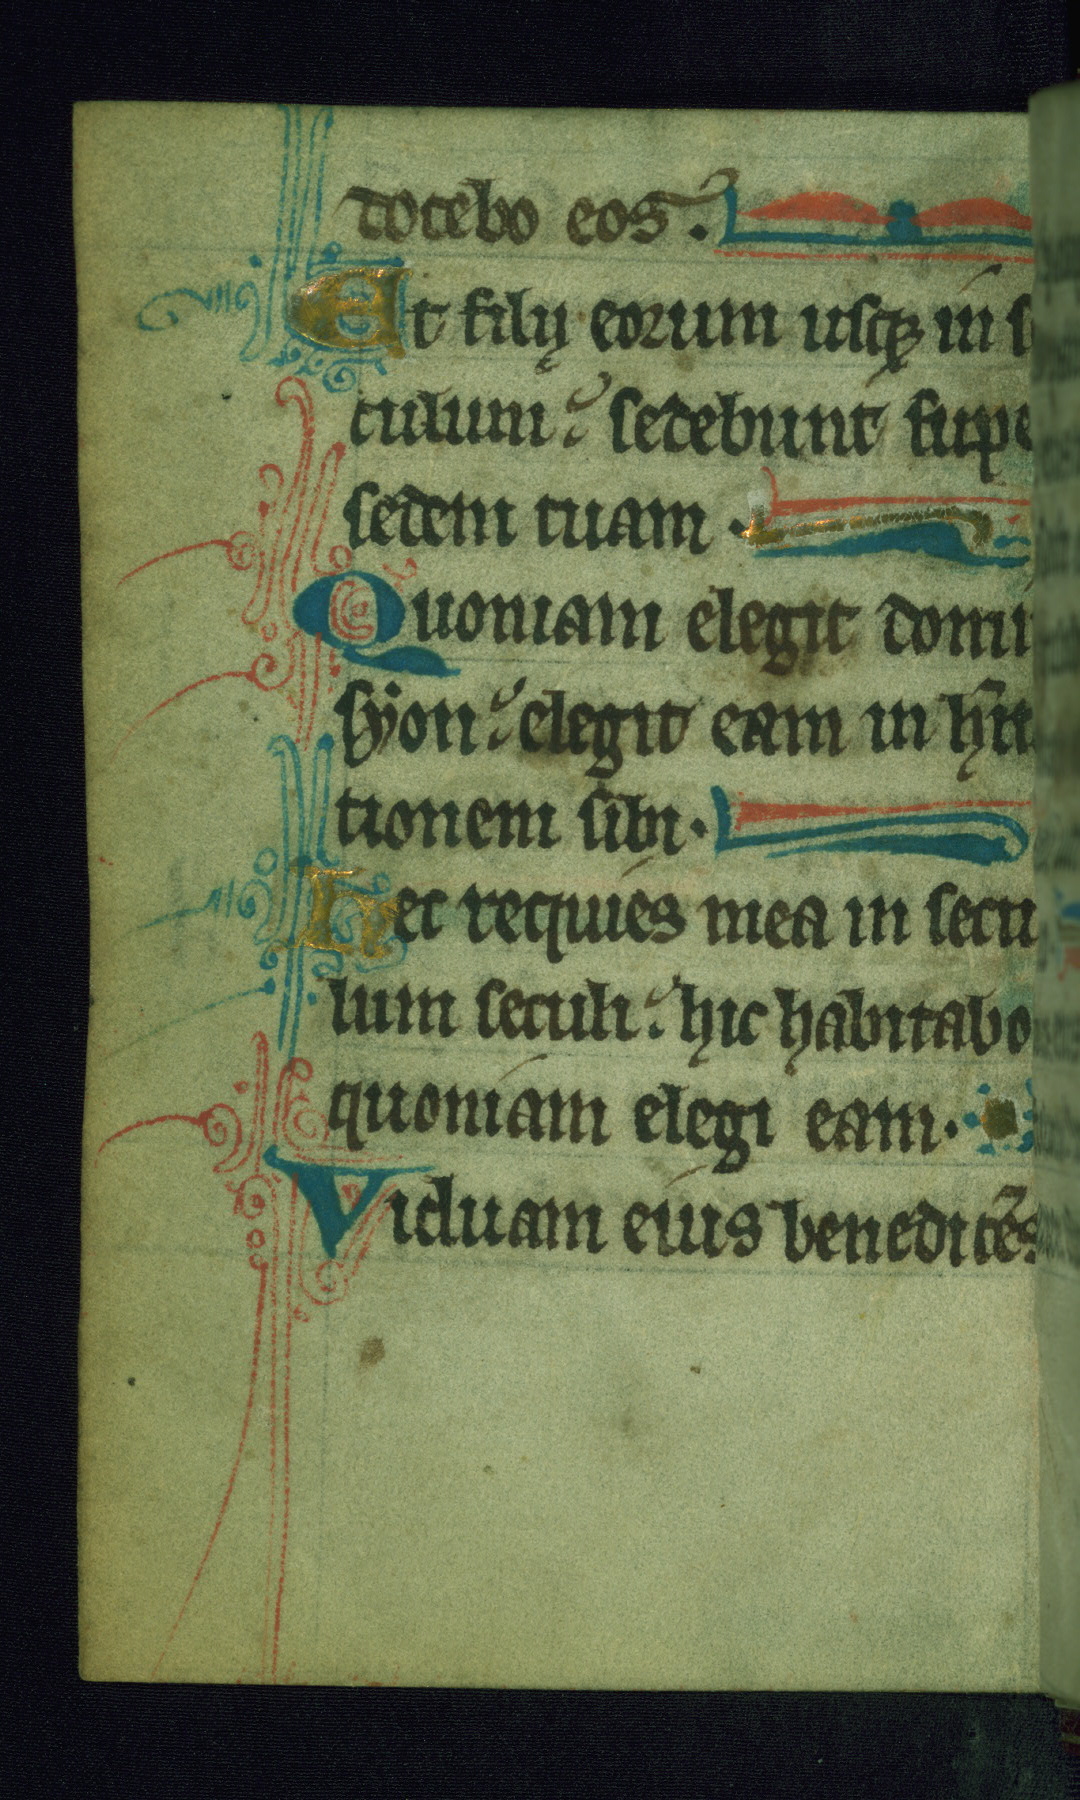 docebo eos.
Et filij eorum usq; in s
culum: sedebunt supe
sedem tuam.
Quoniam elegit domi
syon: elegit eam in hita
tionem sibi.
Hec requies mea in secu
lum seculi: hic habitabo
quoniam elegi eam.
Viduam eius benedicēs